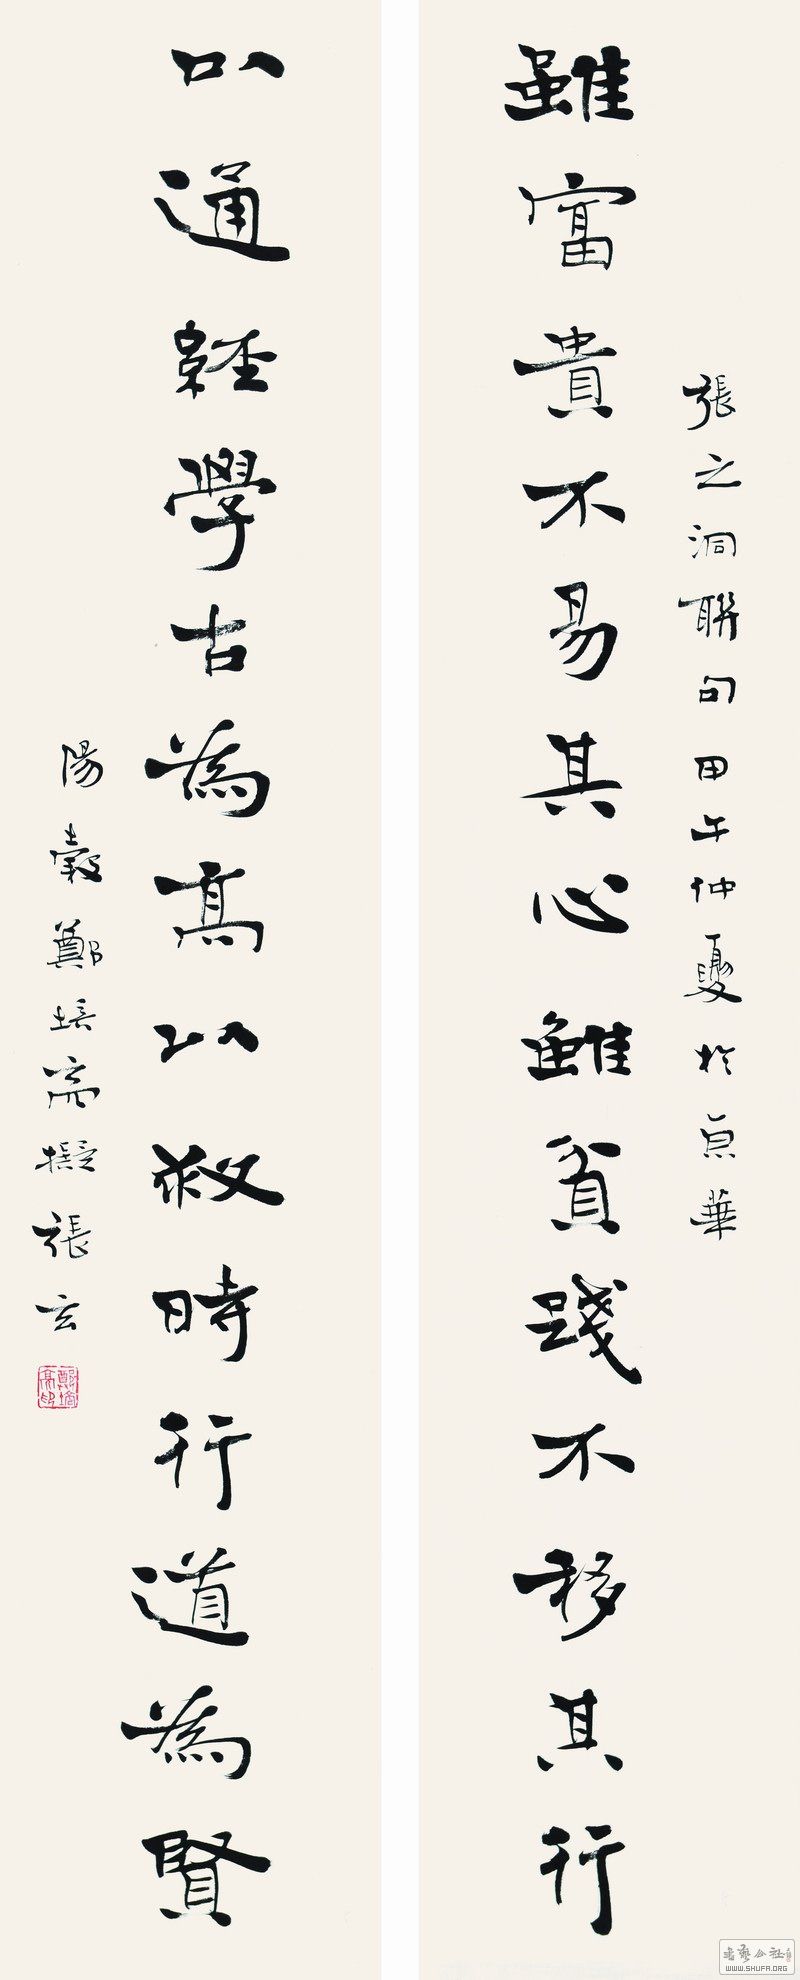 張之洞聯句甲午仲夏於京華
雖富貴不易其心雖貧踐不移其行
以通經學古為高以救時行道為賢
陽穀鄭培亮擬張玄
鄭培亮印
WWW.SHUFA.ORG